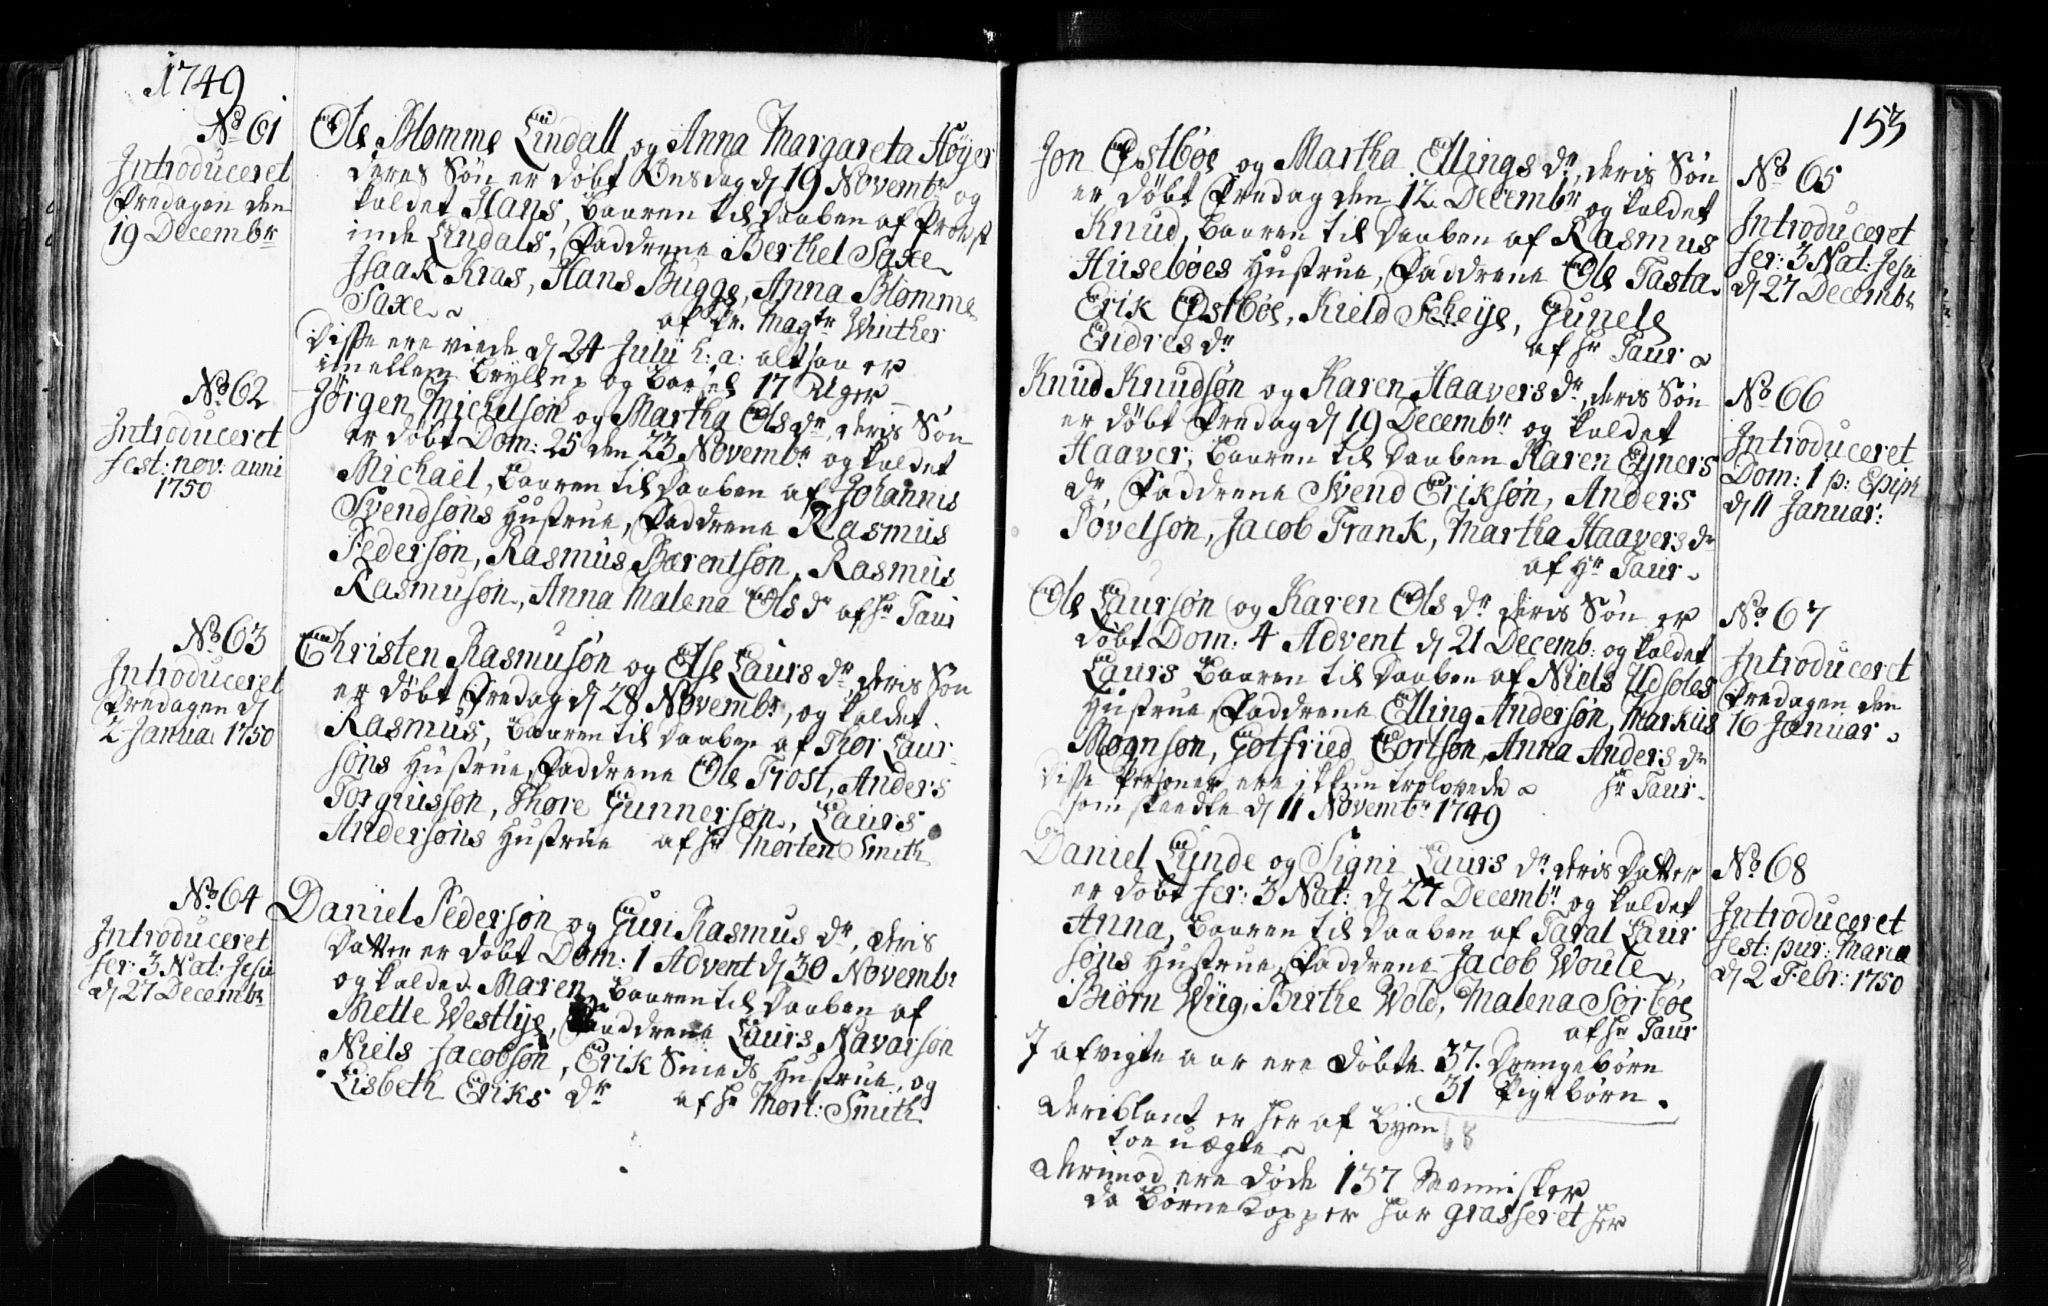 1749
No 61
Introduceret
Fredagen den
19 Decembr
Ole Blomme Lindall og Anna Margareta Høyer
deres Søn er døbt Onsdag d 19 Novembr og
kaldet Hans, baaren til Daaben af Proust
inde Lindals, Faddrene Berthel Saxe
Isaak Kras, Hans Bugge, Anna Blomme
Saxe af Hr. Magtr Winther
Disse ere viede d 24 Julii h: a: altsaa er
imellem Bryllup og Barsel 17 Uger
No 62
Introduceret
fest: nov: anni
1750
Jørgen Michelsøn og Martha Ols dr, deris Søn
er døbt Dom: 25 den 23 Novembr og kaldet
Michael, baaren til Daaben af Johannis
Svendsøns Hustrue, Faddrene Rasmus
Pedersøn, Rasmus Barentsøn, Rasmus
Rasmusøn, Anna Malena Ols dr af Hr Taur
No 63
Introduceret
Fredagen d
2 Januar 1750
Christen Rasmusøn og Else Laurs dr, deris Søn
er døbt Fredag d 28 Novembr, og kaldet
Rasmus, baaren til Daaben af Thor Laur-
søns Hustrue, Faddrene Ole Frost, Anders
Torgiussøn, Thore Gunnersøn, Laurs
Andersøns Hustrue af Hr Morten Smith
No 64
Introduceret
fer: 3 Nat: Jesu
d 27 Decembr
Daniel Pedersøn og Guri Rasmus dr, deris
Datter er døbt Dom: 1 Advent d 30 Novembr
og kaldet Maren baaren til Daaben af
Mette Westlye, Faddrene Laurs Navarsøn
Niels Jacobsøn, Erik Smeds Hustrue, og
Lisbeth Eriks dr af Hr Mort: Smith
153
Jon Østbøe og Martha Ellings dr, deris Søn
er døbt Fredag den 12 Decembr og kaldet
Knud, baaren til Daaben af Rasmus
Husebøes Hustrue, Faddrene Ole Tasta
Erik Østbøe, Kield Scheije, Gunele
Endres dr af Hr Taur
No 65
Introduceret
fer: 3 Nat: Jesu
d 27 Decembr
Knud Knudsøn og Karen Haavers dr, deris Søn
er døbt Fredag d 19 Decembr og kaldet
Haaver, baaren til Daaben Karen Ejners
dr, Faddrene Svend Eriksøn, Anders
Povelsøn, Jacob Frank, Martha Haavers dr
af Hr Taur
No 66
Introduceret
Dom: 1 p: Epiph
d 11 Januar:
Ole Laursøn og Karen Ols dr deris Søn er
døbt Dom: 4 Advent d 21 Decemb: og kaldet
Laurs baaren til Daaben af Niels Udsoles
Hustrue, Faddrene Elling Andersøn, Markus
Mognsøn, Gotfried Cortsøn, Anna Anders dr
Disse Personer ere ikkun trolovede Hr Taur
som skeedte d 11 Novembr 1749
No 67
Introduceret
Fredagen den
16 Januar
Daniel Lunde og Signi Laurs dr deris Datter
er døbt fer: 3 Nat: d 27 Decembr og kaldet
Anna, baaren til Daaben af Taral Laur
søns Hustrue, Faddrene Jacob Woule
Biørn Wiig, Birthe Wold, Malena Sørbøe
af Hr Taur
No 68
Introduceret
Fest: pur: Maria
d 2 Febr: 1750
J afvigte aar ere døbte 37. Drengebørn
31 Pigebørn.
Deriblant er her af Byen 68
toe uægte
Derimod ere døde 137 Mennisker
da Børnekopper har grasseret her